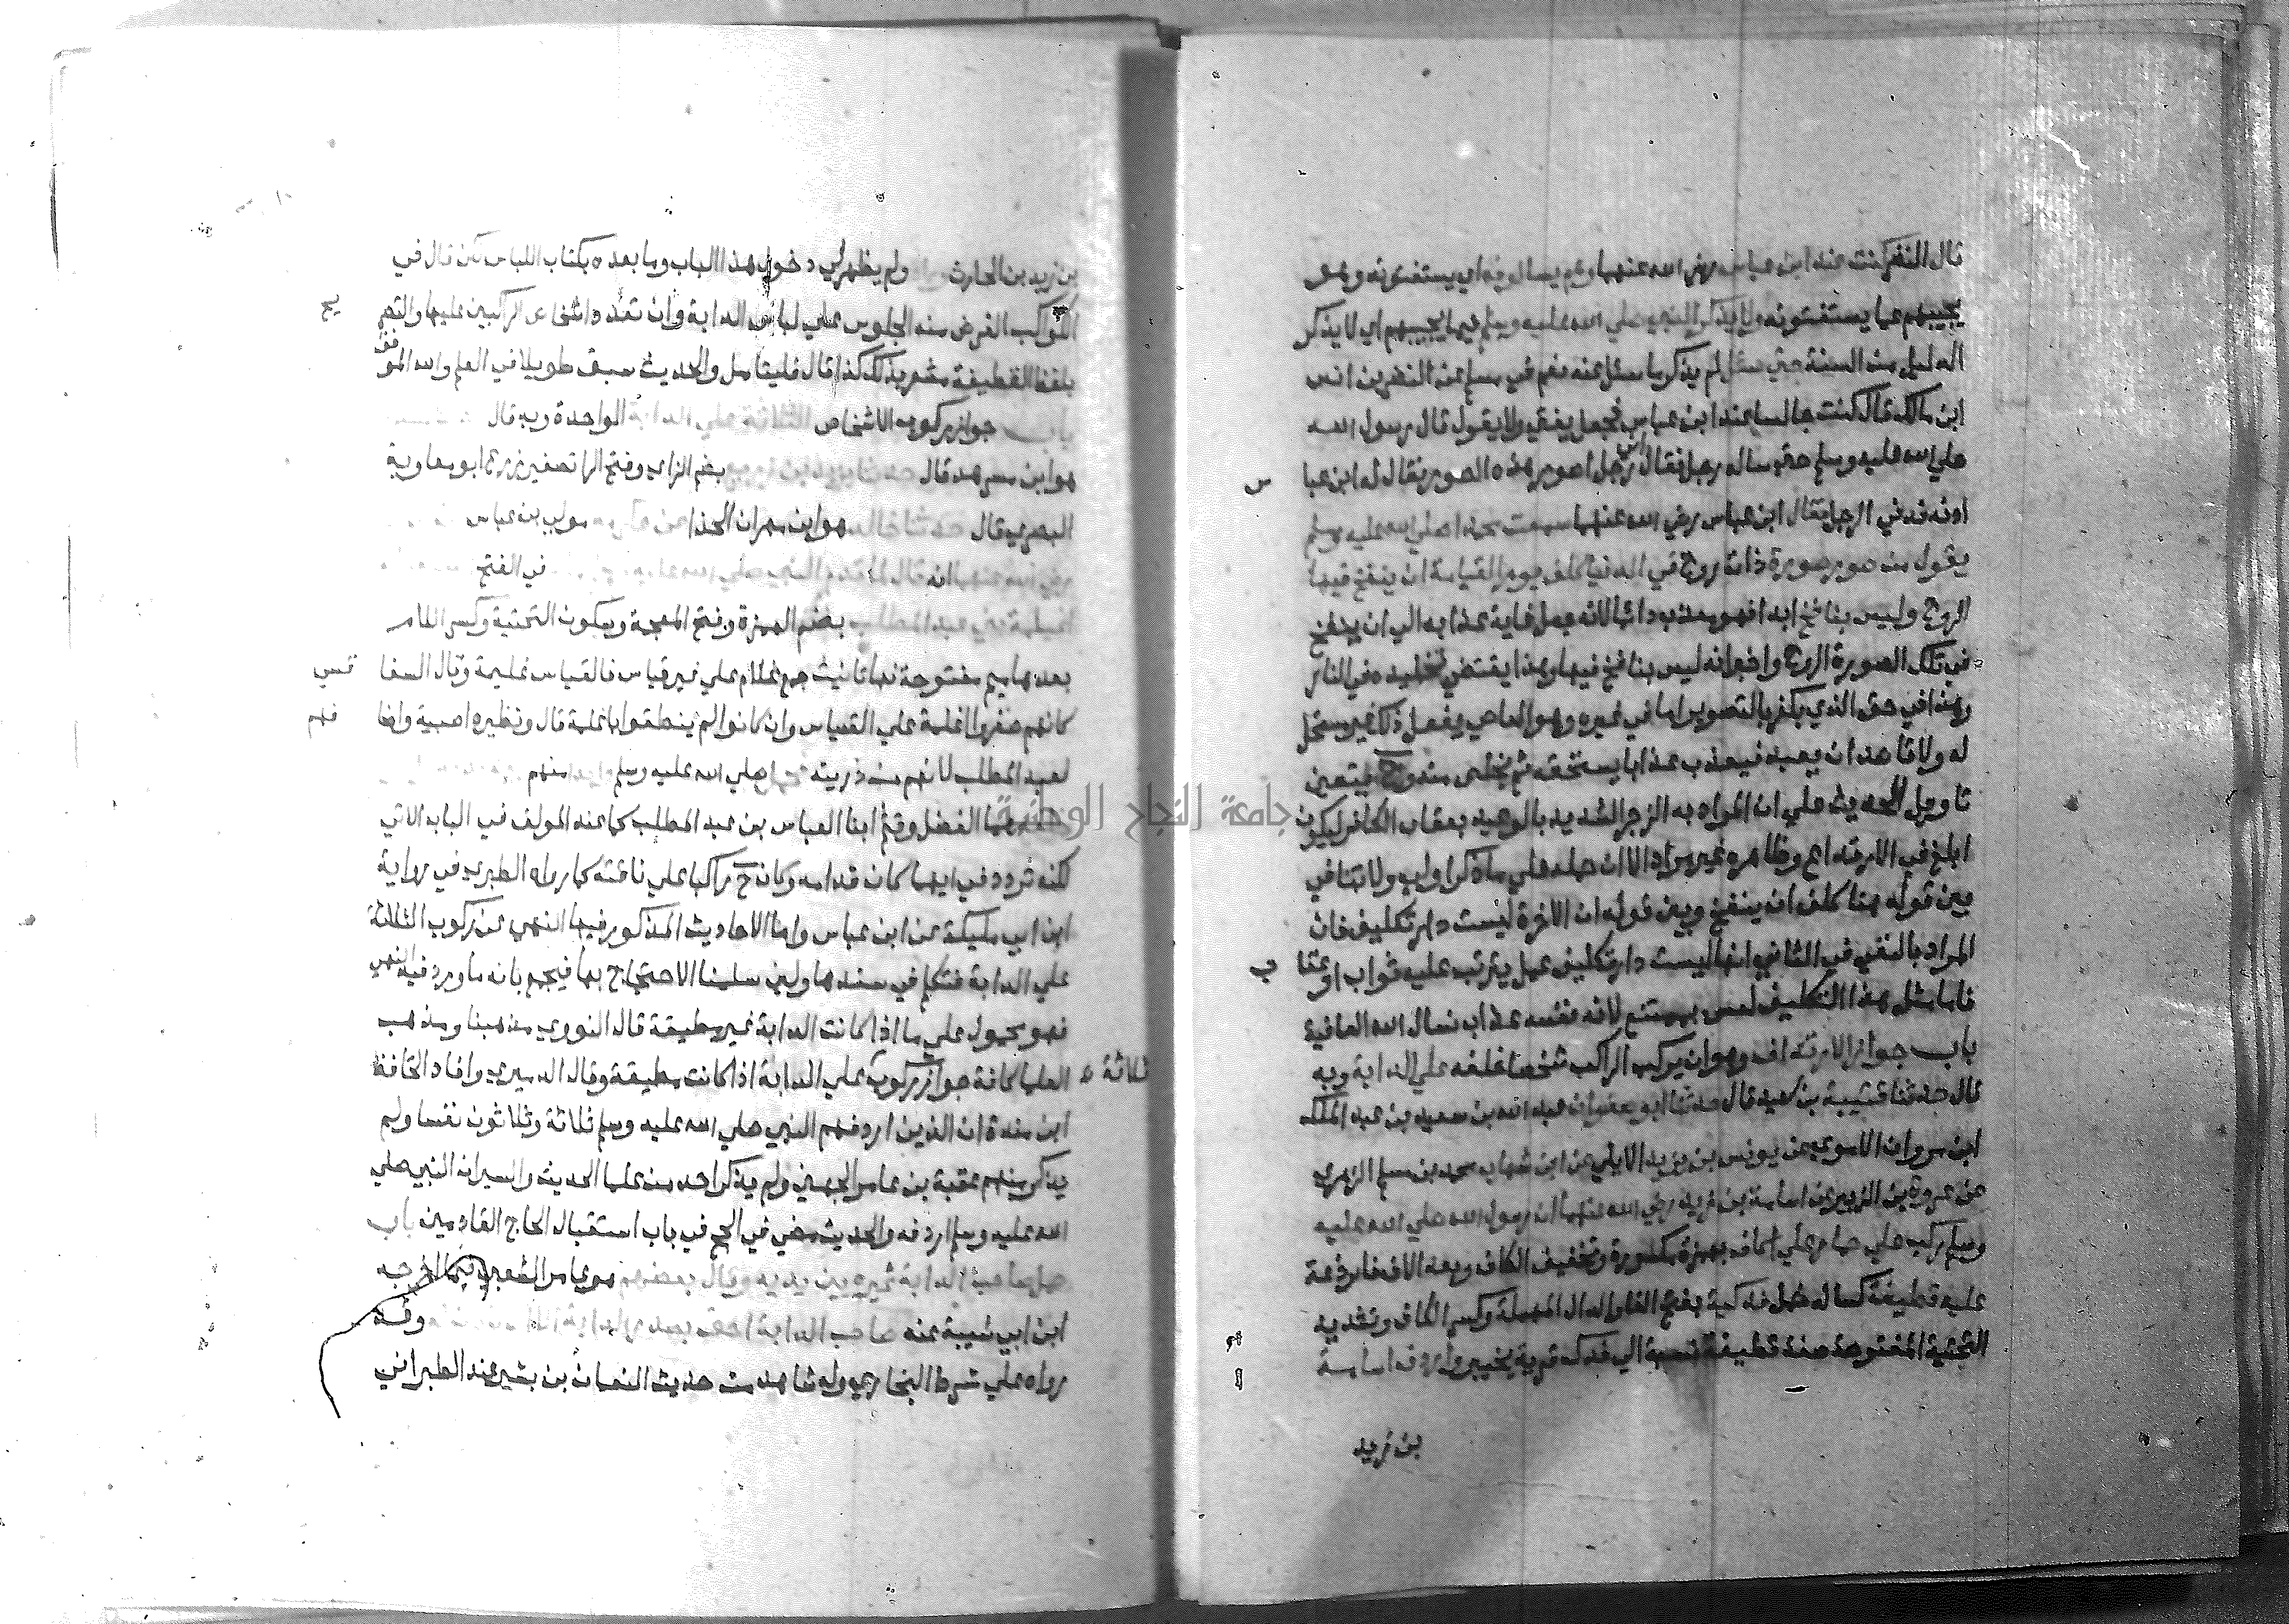 قال النضر كنت عند ابن عباس رضي الله عنهما وهم يسالونه اي يستفتونه وهو
يجيبهم عما يستفتونه ولا يذكر النبي صلي الله عليه وسلم فيما يجيبهم اي لا يذكر
الدليل من السنة حتي سئل لم يذكر ما سئل عنه نعم في مسلم عن النضر بن انس
ابن مالك قال كنت جالسا عند ابن عباس فجعل يفتي ولا يقول قال رسول الله
صلي الله عليه وسلم حتي ساله رجل فقال اني رجل اصور هذه الصور فقال له ابن عبا س
ادنه فدني الرجل فقال ابن عباس رضي الله عنهما سمعت محمدا صلي الله عليه وسلم
يقول من صور صورة ذات روح في الدنيا كلف يوم القيامة ان ينفخ فيها
الروح وليس بنافخ ابدا فهو معذب دائما لانه جعل غاية عذابه الي ان ينفخ
في تلك الصورة الروح واخبر انه ليس بنافخ فيها وهذا يقتضي تخليده في النار
وهذا في حق الذي يكفر بالتصوير اما في غيره وهو العاصي يفعل ذلك غير مستحل
له ولا قاصد ان يعبد فيعذب عذابا يستحقه ثم يخلص منه وح فيتعين
تاويل الحديث علي ان المراد به الزجر الشديد بالوعيد بعقاب الكافر ليكون
ابلغ في الارتداع وظاهره غير مراد الا ان حمله علي ما ذكر اولي ولا تنافي
بين قوله هنا كلف ان ينفخ وبين قوله ان الاخرة ليست دار تكليف فان
المراد بالنفي في الثاني انها ليست دار تكليف عمل يترتب عليه ثواب او عقا ب
فاما مثل هذا التكليف ليس بممتنع لانه نفسه عذاب نسال الله العافية
باب جواز الارتداف وهو ان يركب الراكب شخصا خلفه علي الدابة وبه
قال حدثنا قتيبة بن سعيد قال حدثنا ابو صفوان عبد الله بن سعيد بن عبد الملك
ابن مروان الاموي عن يونس بن يزيد الايلي عن ابن شهاب محمد بن مسلم الزهري
عن عروة بن الزبير عن اسامة بن زيد رضي الله عنهما ان رسول الله صلي الله عليه
وسلم ركب علي حمار علي اكاف بهمزة مكسورة وتخفيف الكاف وبعد الالف فا برذعة
عليه قطيفة كسا له خمل فدكية بفتح الفا والدال المهملة وكسر الكاف وتشديد
التحتية المفتوحة صفة قطيفة نسبة الي فدك قرية بخيبر واردف اسامة
بن زيد
بن زيد بن الحارث وراه ولم يظهر لي دخول هذا الباب وما بعده بكتاب اللباس لكن قال في
الكواكب الغرض منه الجلوس علي لباس الدابة وان تعدد اشخاص الراكبين عليها والتصر يح
بلفظ القطيفة مشعر بذلك كذا قال فليتامل والحديث سبق طويلا في العلم والله الموفق
باب جواز ركوب الاشخاص الثلاثة علي الدابة الواحدة وبه قال
هو ابن مسرهد قال حدثنا يزيد بن زريع بضم الزاي وفتح الرا تصغير زرع ابو معاوية
البصري قال حدثنا خالد هو ابن مهران الحذا عن مولي بن عباس
رضي الله عنهما انه قال لما قدم النبي صلي الله عليه في الفتح
اغيلمة بني عبد المطلب بضم الهمزة وفتح المعجمة وسكون التحتية وكسر اللام
بعدها ميم مفتوحة فها تانيث جمع غلام علي غير قياس فالقياس غليمة وقال السفا قسي
كانهم صغروا اغلمة علي القياس وان كانوا لم ينطقوا باغلمة قال ونظيره اصيبية واضا فهم
لعبد المطلب لانهم من ذريته صلي الله عليه وسلم منهم
هما الفضل وقثم ابنا العباس بن عبد المطلب كما عند المولف في الباب الاتي
لكنه تردد في ايهما كان قدامه وكان ح راكبا علي ناقته كما رواه الطبري في رواية
ابن ابي مليكة عن ابن عباس واما الاحاديث المذكور فيها النهي عن ركوب الثلاثة
علي الدابة فتكلم في سندها ولين سلمنا الاحتجاج بها فيجمع بانه ما ورد فيه النهي
فهو محمول علي ما اذا كانت الدابة غير مطيقة قال النووي مذهبنا ومذهب
العلما كافة جواز ركوب ثلاثة علي الدابة اذا كانت مطيقة وقال الدميري وافاد الحافظ
ابن مندة ان الذين اردفهم النبي صلي الله عليه وسلم ثلاثة وثلاثون نفسا ولم
يذكر منهم عقبة بن عامر الجهني ولم يذكر احد من علما الحديث والسير ان النبي صلي
الله عليه وسلم اردفه والحديث مضي في الحج في باب استقبال الحاج القادمين باب
حمل صاحب الدابة غيره بين يديه وقال بعضهم هو عامر الشعبي فيما اخرجه
ابن ابي شيبة عنه صاحب الدابة احق بصدر الدابة وقد
رواه علي شرط البخاري وله شاهد من حديث النعمان بن بشير عند الطبراني
جامعة النجاح الوطنية